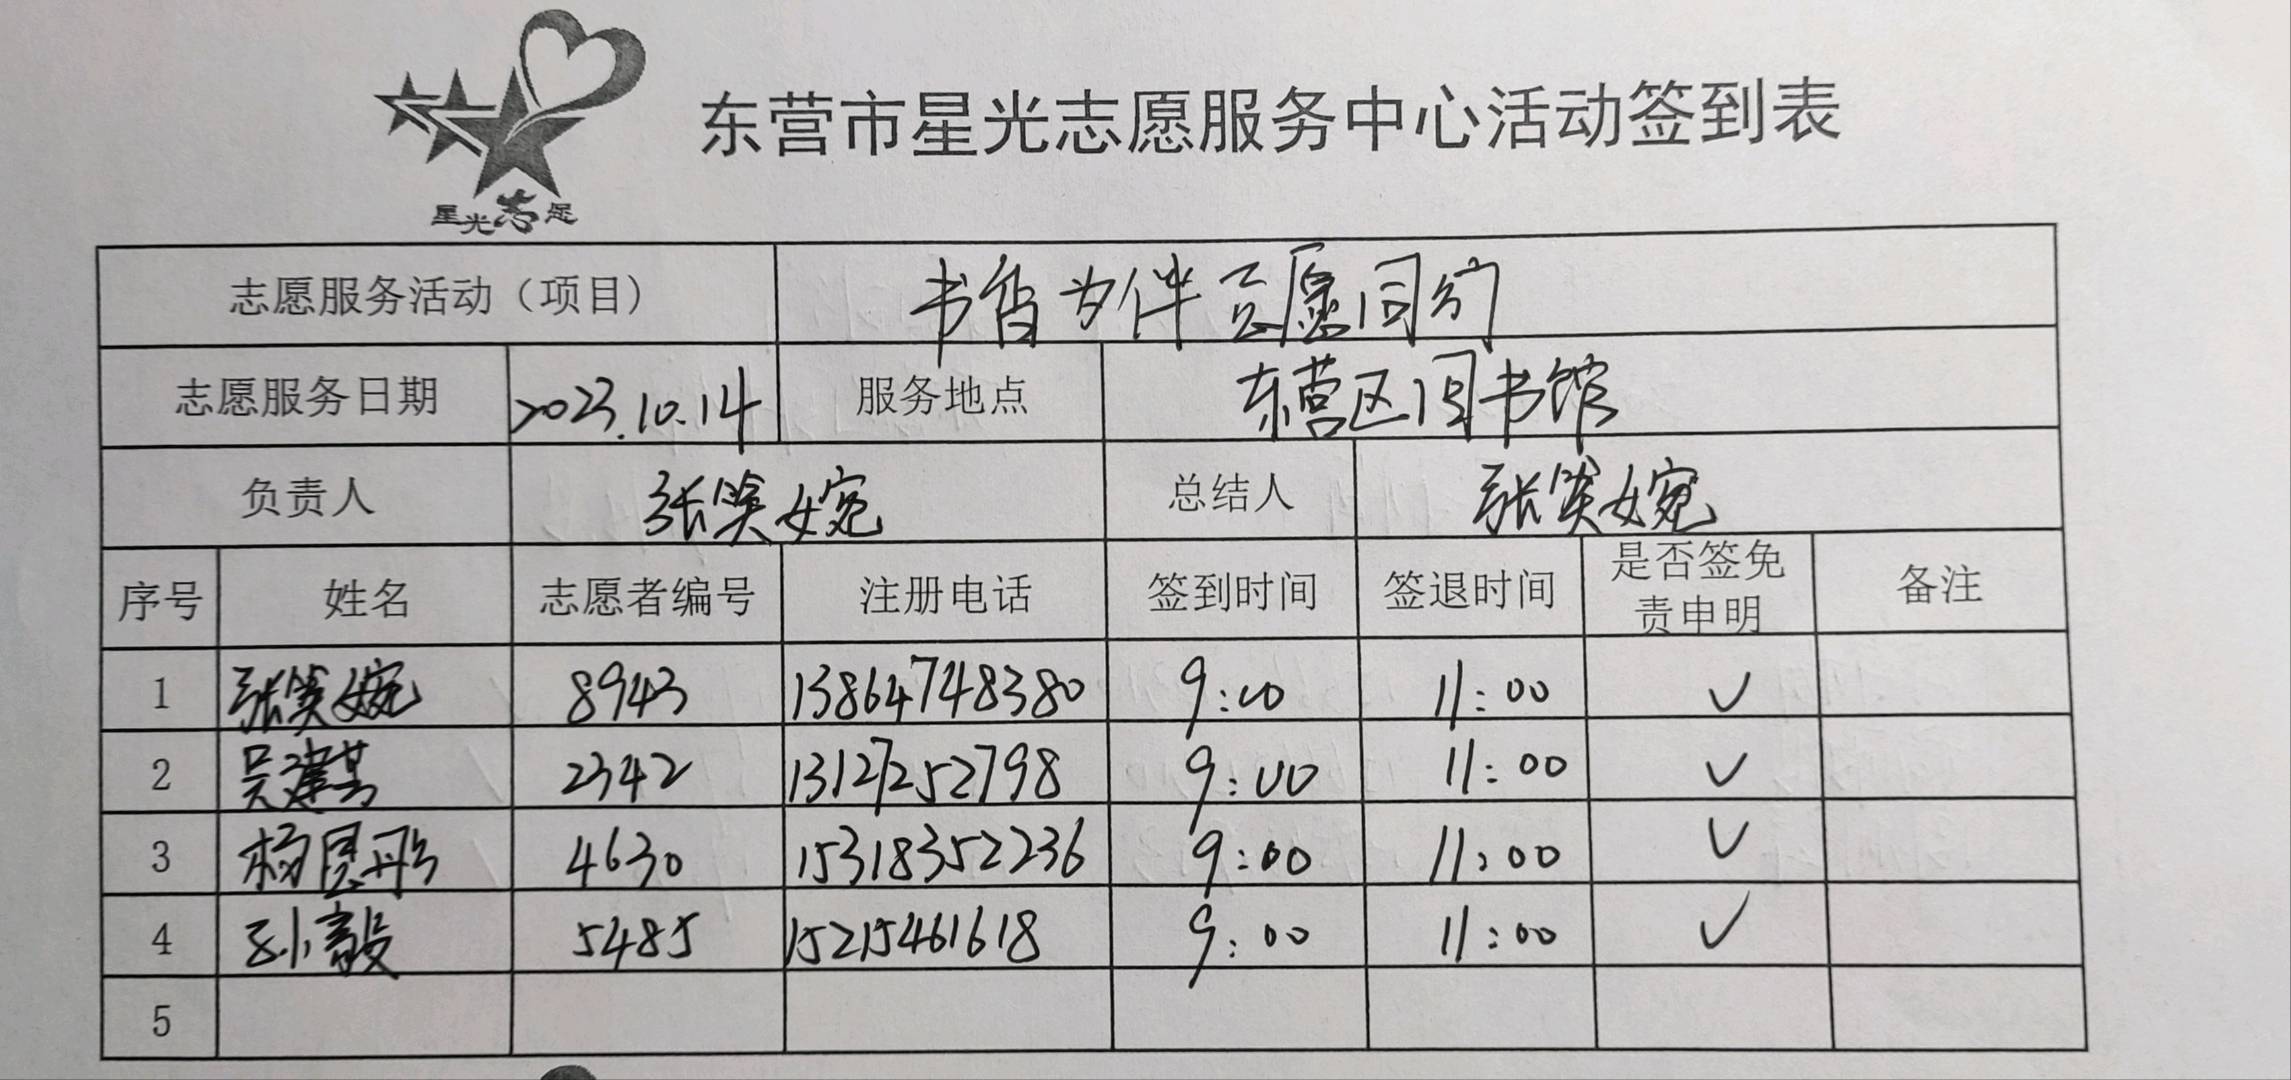 星光志愿
东营市星光志愿服务中心活动签到表
志愿服务活动（项目） 书香为伴 志愿同行
志愿服务日期 2023.10.14 服务地点 东营区图书馆
负责人 张笑婉 总结人 张笑婉
序号 姓名 志愿者编号 注册电话 签到时间 签退时间 是否签免责申明 备注
1 张笑婉 8943 13864748380 9:00 11:00 ✓
2 吴建 2342 13127252798 9:00 11:00 ✓
3 杨昆彤 4630 15318352236 9:00 11:00 ✓
4 孙毅 5485 15215461618 9:00 11:00 ✓
5